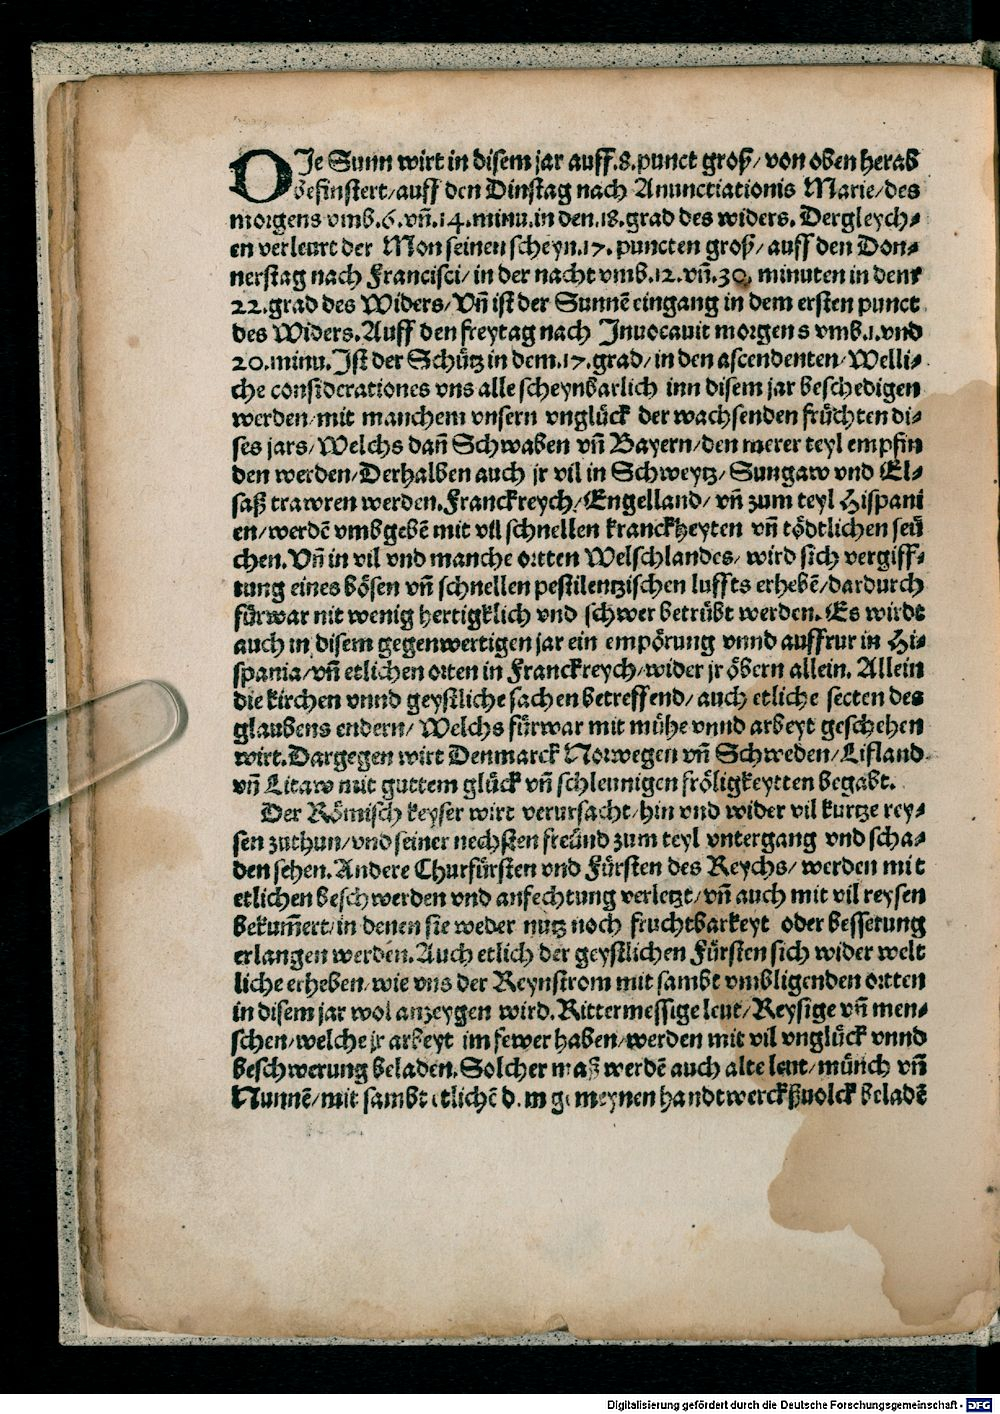 DJe Sunn wirt in disem jar auff.8.punct groß/ von oben herab
befinstert/auff den Dinstag nach Anunctiationis Marie/des
morgens vmb.6.vñ.14.minu.in den.18.grad des widers. Dergleych⸗
en verleurt der Mon seinen scheyn.17. puncten groß/ auff den Don⸗
nerstag nach Francisci/ in der nacht vmb.12.vñ.30. minuten in dem
22.grad des Widers/ Vñ ist der Sunnē eingang in dem ersten punct
des Widers. Auff den freytag nach Jnuocauit morgens vmb.1.vnd
20.minu. Jst der Schütz in dem.17.grad/ in den ascendenten/ Welli⸗
che considerationes vns alle scheynbarlich inn disem jar beschedigen
werden/ mit manchem vnsern vnglück der wachsenden früchten di⸗
ses jars/ Welchs dañ Schwaben vñ Bayern/ den merer teyl empfin
den werden/ Derhalben auch jr vil in Schweytz/ Sungaw vnd El⸗
saß trawren werden. Franckreych/ Engelland/ vñ zum teyl Hispani
en/ werdē vmbgebē mit vil schnellen kranckheyten vñ tödtlichen seü
chen. Vñ in vil vnd manche ortten Welschlandes/ wird sich vergiff⸗
tung eines bösen vñ schnellen pestilentzischen luffts erhebē/ dardurch
fürwar nit wenig hertigklich vnd schwer betrübt werden. Es wirdt
auch in disem gegenwertigen jar ein empörung vnnd auffrur in Hi⸗
spania/ vñ etlichen orten in Franckreych/ wider jr öbern allein. Allein
die kirchen vnnd geystliche sachen betreffend/ auch etliche secten des
glaubens endern/ Welchs fürwar mit mühe vnnd arbeyt geschehen
wirt. Dargegen wirt Denmarck Norwegen vñ Schweden/ Lifland
vñ Litaw mit guttem glück vñ schleunigen fröligkeytten begabt.
Der Römisch keyser wirt verursacht/ hin vnd wider vil kurtze rey⸗
sen zuthun/ vnd seiner nechsten freünd zum teyl vntergang vnd scha⸗
den sehen. Andere Churfürsten vnd Fürsten des Reychs/ werden mit
etlichen beschwerden vnd anfechtung verletzt/ vñ auch mit vil reysen
bekum̄ert/ in denen sie weder nutz noch fruchtbarkeyt oder besserung
erlangen werden. Auch etlich der geystlichen Fürsten sich wider welt
liche erheben/ wie vns der Reynstrom mit sambt vmbligenden ortten
in disem jar wol anzeygen wird. Rittermessige leut/ Reysige vñ men⸗
schen/ welche jr arbeyt im fewer haben/ werden mit vil vnglück vnnd
beschwerung beladen. Solcher maß werdē auch alte leut/ münch vñ
Nunnē/ mit sambt etlichē dem gemeynen handtwerckßuolck beladē
Digitalisierung gefördert durch die Deutsche Forschungsgemeinschaft - DFG